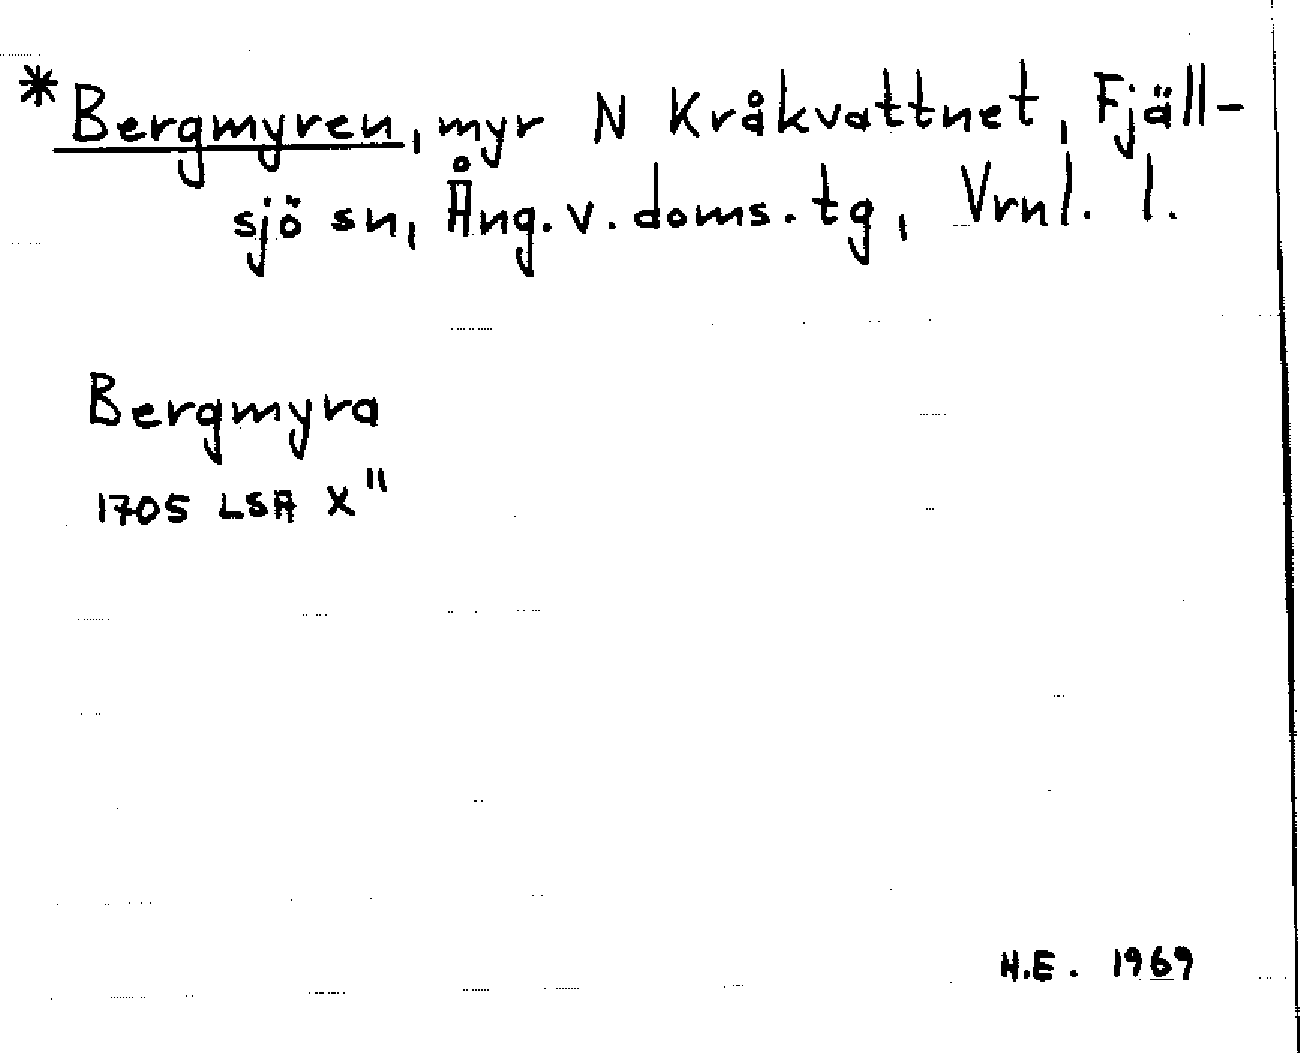 *Bergmyren, myr N Kråkvattnet, Fjäll-
sjö sn, Ång. v. doms. tg, Vrnl. l.
Bergmyra
1705 LSA X"
H.E. 1969